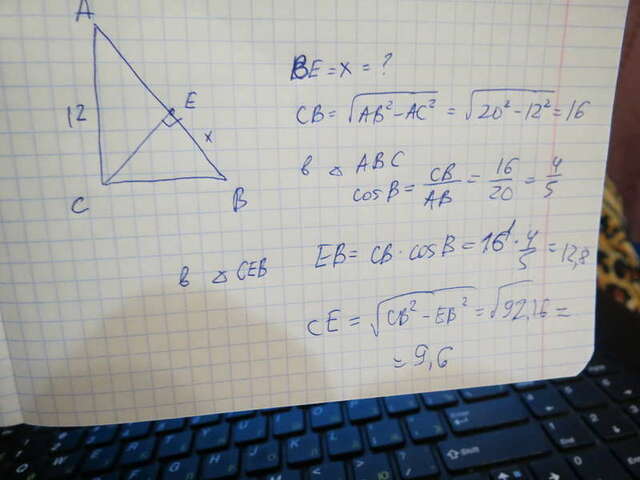 A
12
E
x
C
B
BE = x = ?
CB = √AB² - AC² = √20² - 12² = 16
в △ ABC
cosB = CB/AB = 16/20 = 4/5
в △ CEB
EB = CB · cosB = 16 · 4/5 = 12,8
CE = √CB² - EB² = √92,16 =
= 9,6
Shift
Enter